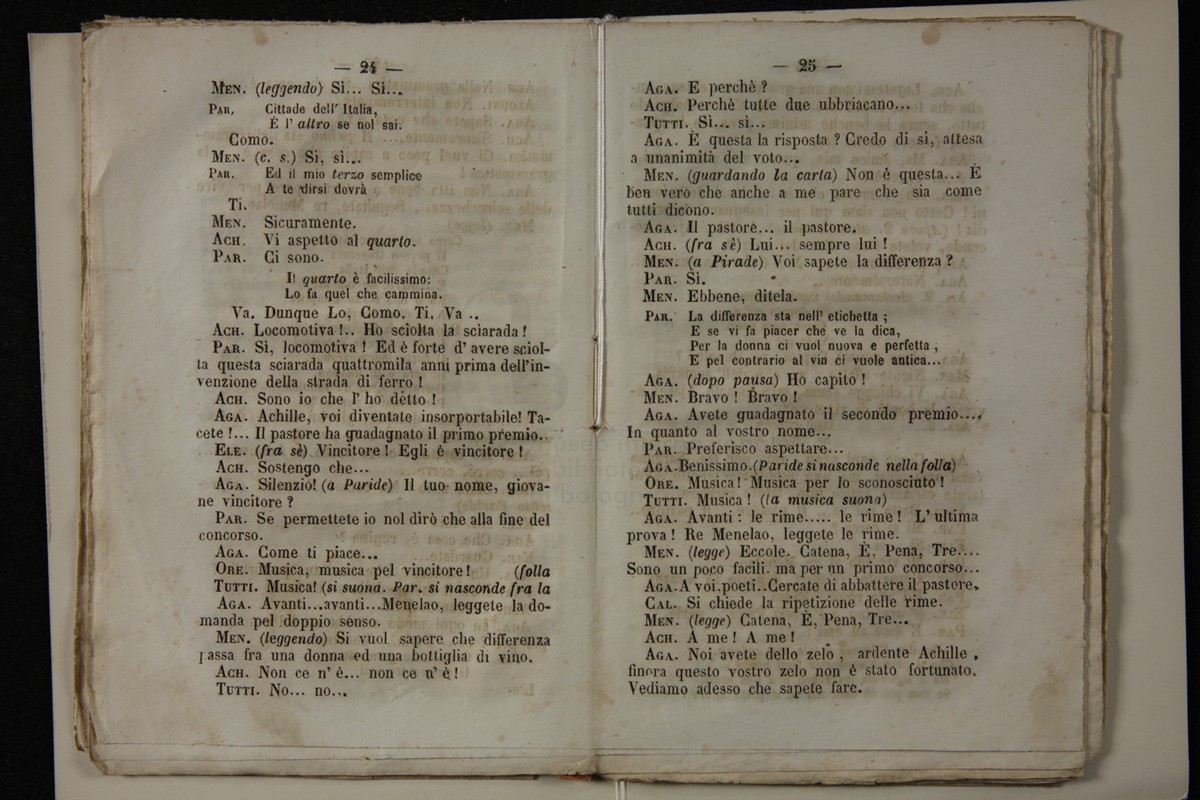 — 24 —
MEN. (leggendo) Sì... Sì...
PAR, Cittade dell' Italia,
È l' altro se nol sai.
Como.
MEN. (c. s.) Si, sì...
PAR. Ed il mio terzo semplice
A te dirsi dovrà
Ti.
MEN. Sicuramente.
ACH. Vi aspetto al quarto.
PAR. Ci sono.
Il quarto è facilissimo:
Lo fa quel che cammina.
Va. Dunque Lo, Como, Ti, Va ..
ACH. Locomotiva!.. Ho sciolta la sciarada!
PAR. Sì, locomotiva! Ed è forte d' avere sciol-
ta questa sciarada quattromila anni prima dell'in-
venzione della strada di ferro!
ACH. Sono io che l' ho detto!
AGA. Achille, voi diventate insorportabile! Ta-
cete!... Il pastore ha guadagnato il primo premio..
ELE. (fra sè) Vincitore! Egli è vincitore!
ACH. Sostengo che...
AGA. Silenzio! (a Paride) Il tuo nome, giova-
ne vincitore?
PAR. Se permettete io nol dirò che alla fine del
concorso.
AGA. Come ti piace...
ORE. Musica, musica pel vincitore! (folla
TUTTI. Musica! (si suona. Par. si nasconde fra la
AGA. Avanti...avanti...Menelao, leggete la do-
manda pel doppio senso.
MEN. (leggendo) Si vuol sapere che differenza
passa fra una donna ed una bottiglia di vino.
ACH. Non ce n' è... non ce n' è!
TUTTI. No... no...
— 25 —
AGA. E perchè?
ACH. Perchè tutte due ubbriacano...
TUTTI. Sì... sì...
AGA. È questa la risposta? Credo di si, attesa
a unanimità del voto...
MEN. (guardando la carta) Non è questa... È
ben vero che anche a me pare che sia come
tutti dicono.
AGA. Il pastore... il pastore.
ACH. (fra sè) Lui... sempre lui!
MEN. (a Pirade) Voi sapete la differenza?
PAR. Si.
MEN. Ebbene, ditela.
PAR. La differenza sta nell' etichetta;
E se vi fa piacer che ve la dica,
Per la donna ci vuol nuova e perfetta,
E pel contrario al vin ci vuole antica...
AGA. (dopo pausa) Ho capito!
MEN. Bravo! Bravo!
AGA. Avete guadagnato il secondo premio....
In quanto al vostro nome...
PAR. Preferisco aspettare...
AGA. Benissimo. (Paride si nasconde nella folla)
ORE. Musica! Musica per lo sconosciuto!
TUTTI. Musica! (la musica suona)
AGA. Avanti: le rime..... le rime! L' ultima
prova! Re Menelao, leggete le rime.
MEN. (legge) Eccole. Catena, È, Pena, Tre....
Sono un poco facili. ma per nn primo concorso...
AGA. A voi.poeti..Cercate di abbattere il pastore.
CAL. Si chiede la ripetizione delle rime.
MEN. (legge) Catena, È, Pena, Tre...
ACH. A me! A me!
AGA. Noi avete dello zelo, ardente Achille,
finora questo vostro zelo non è stato fortunato.
Vediamo adesso che sapete fare.